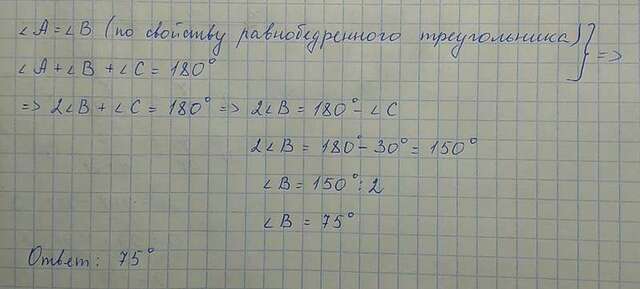 ∠A = ∠B (по свойству равнобедренного треугольника) } =>
∠A + ∠B + ∠C = 180°
=> 2∠B + ∠C = 180° => 2∠B = 180° - ∠C
2∠B = 180° - 30° = 150°
∠B = 150° : 2
∠B = 75°
Ответ: 75°